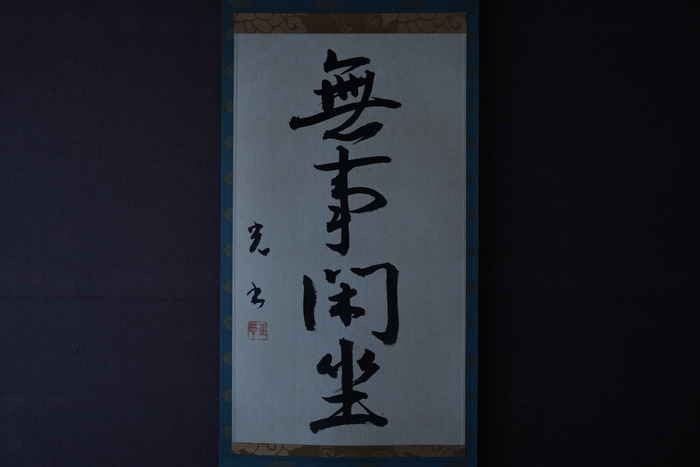 無事閑坐
光書